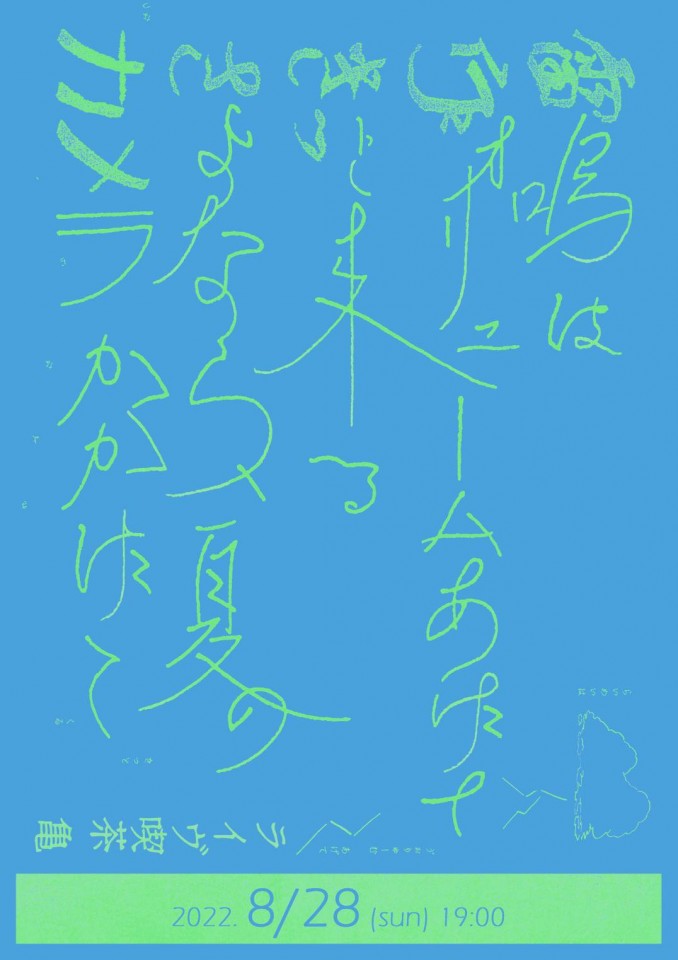 雷鳴は
ヴォリュームあげて
きっと来る
さよなら夏の
カメラかかげて
らいめいは
ライヴ喫茶亀
2022. 8/28 (sun) 19:00